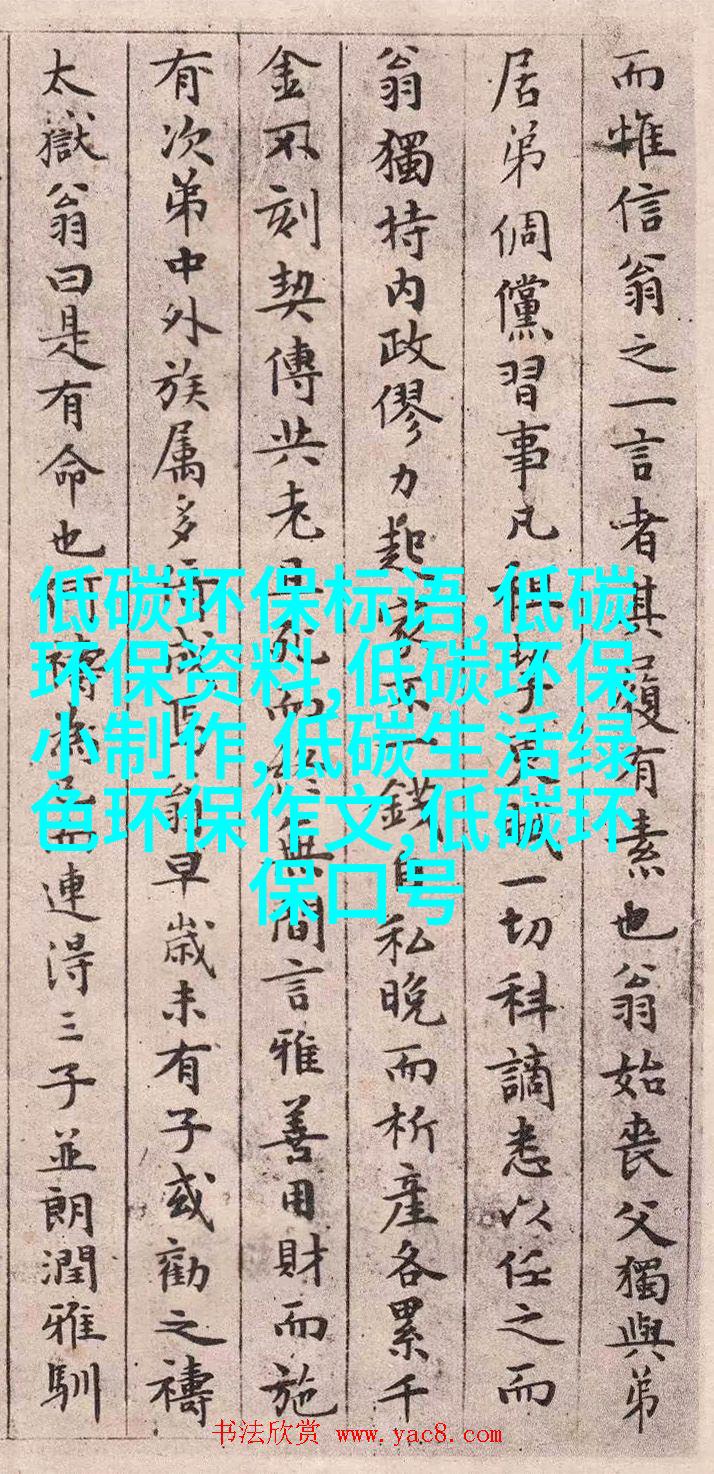 而惟信翁之一言者其履有素也翁始喪父獨與弟
居弟倜儻習事凡租更賦一切科謫悉以任之而
翁獨持内政僇力起家不一錢自私晚而析產各累千
金不刻契傳共老且死而終無間言雅善用財而施
有次第中外族属多待成焉翁早歲未有子或勸之禱
太嶽翁曰是有命也何禱為已而連得三子並朗潤雅馴
低碳环保标语,低碳
环保资料,低碳环保
小制作,低碳生活绿
色环保作文,低碳环
保口号
书法欣赏 www.yac8.com